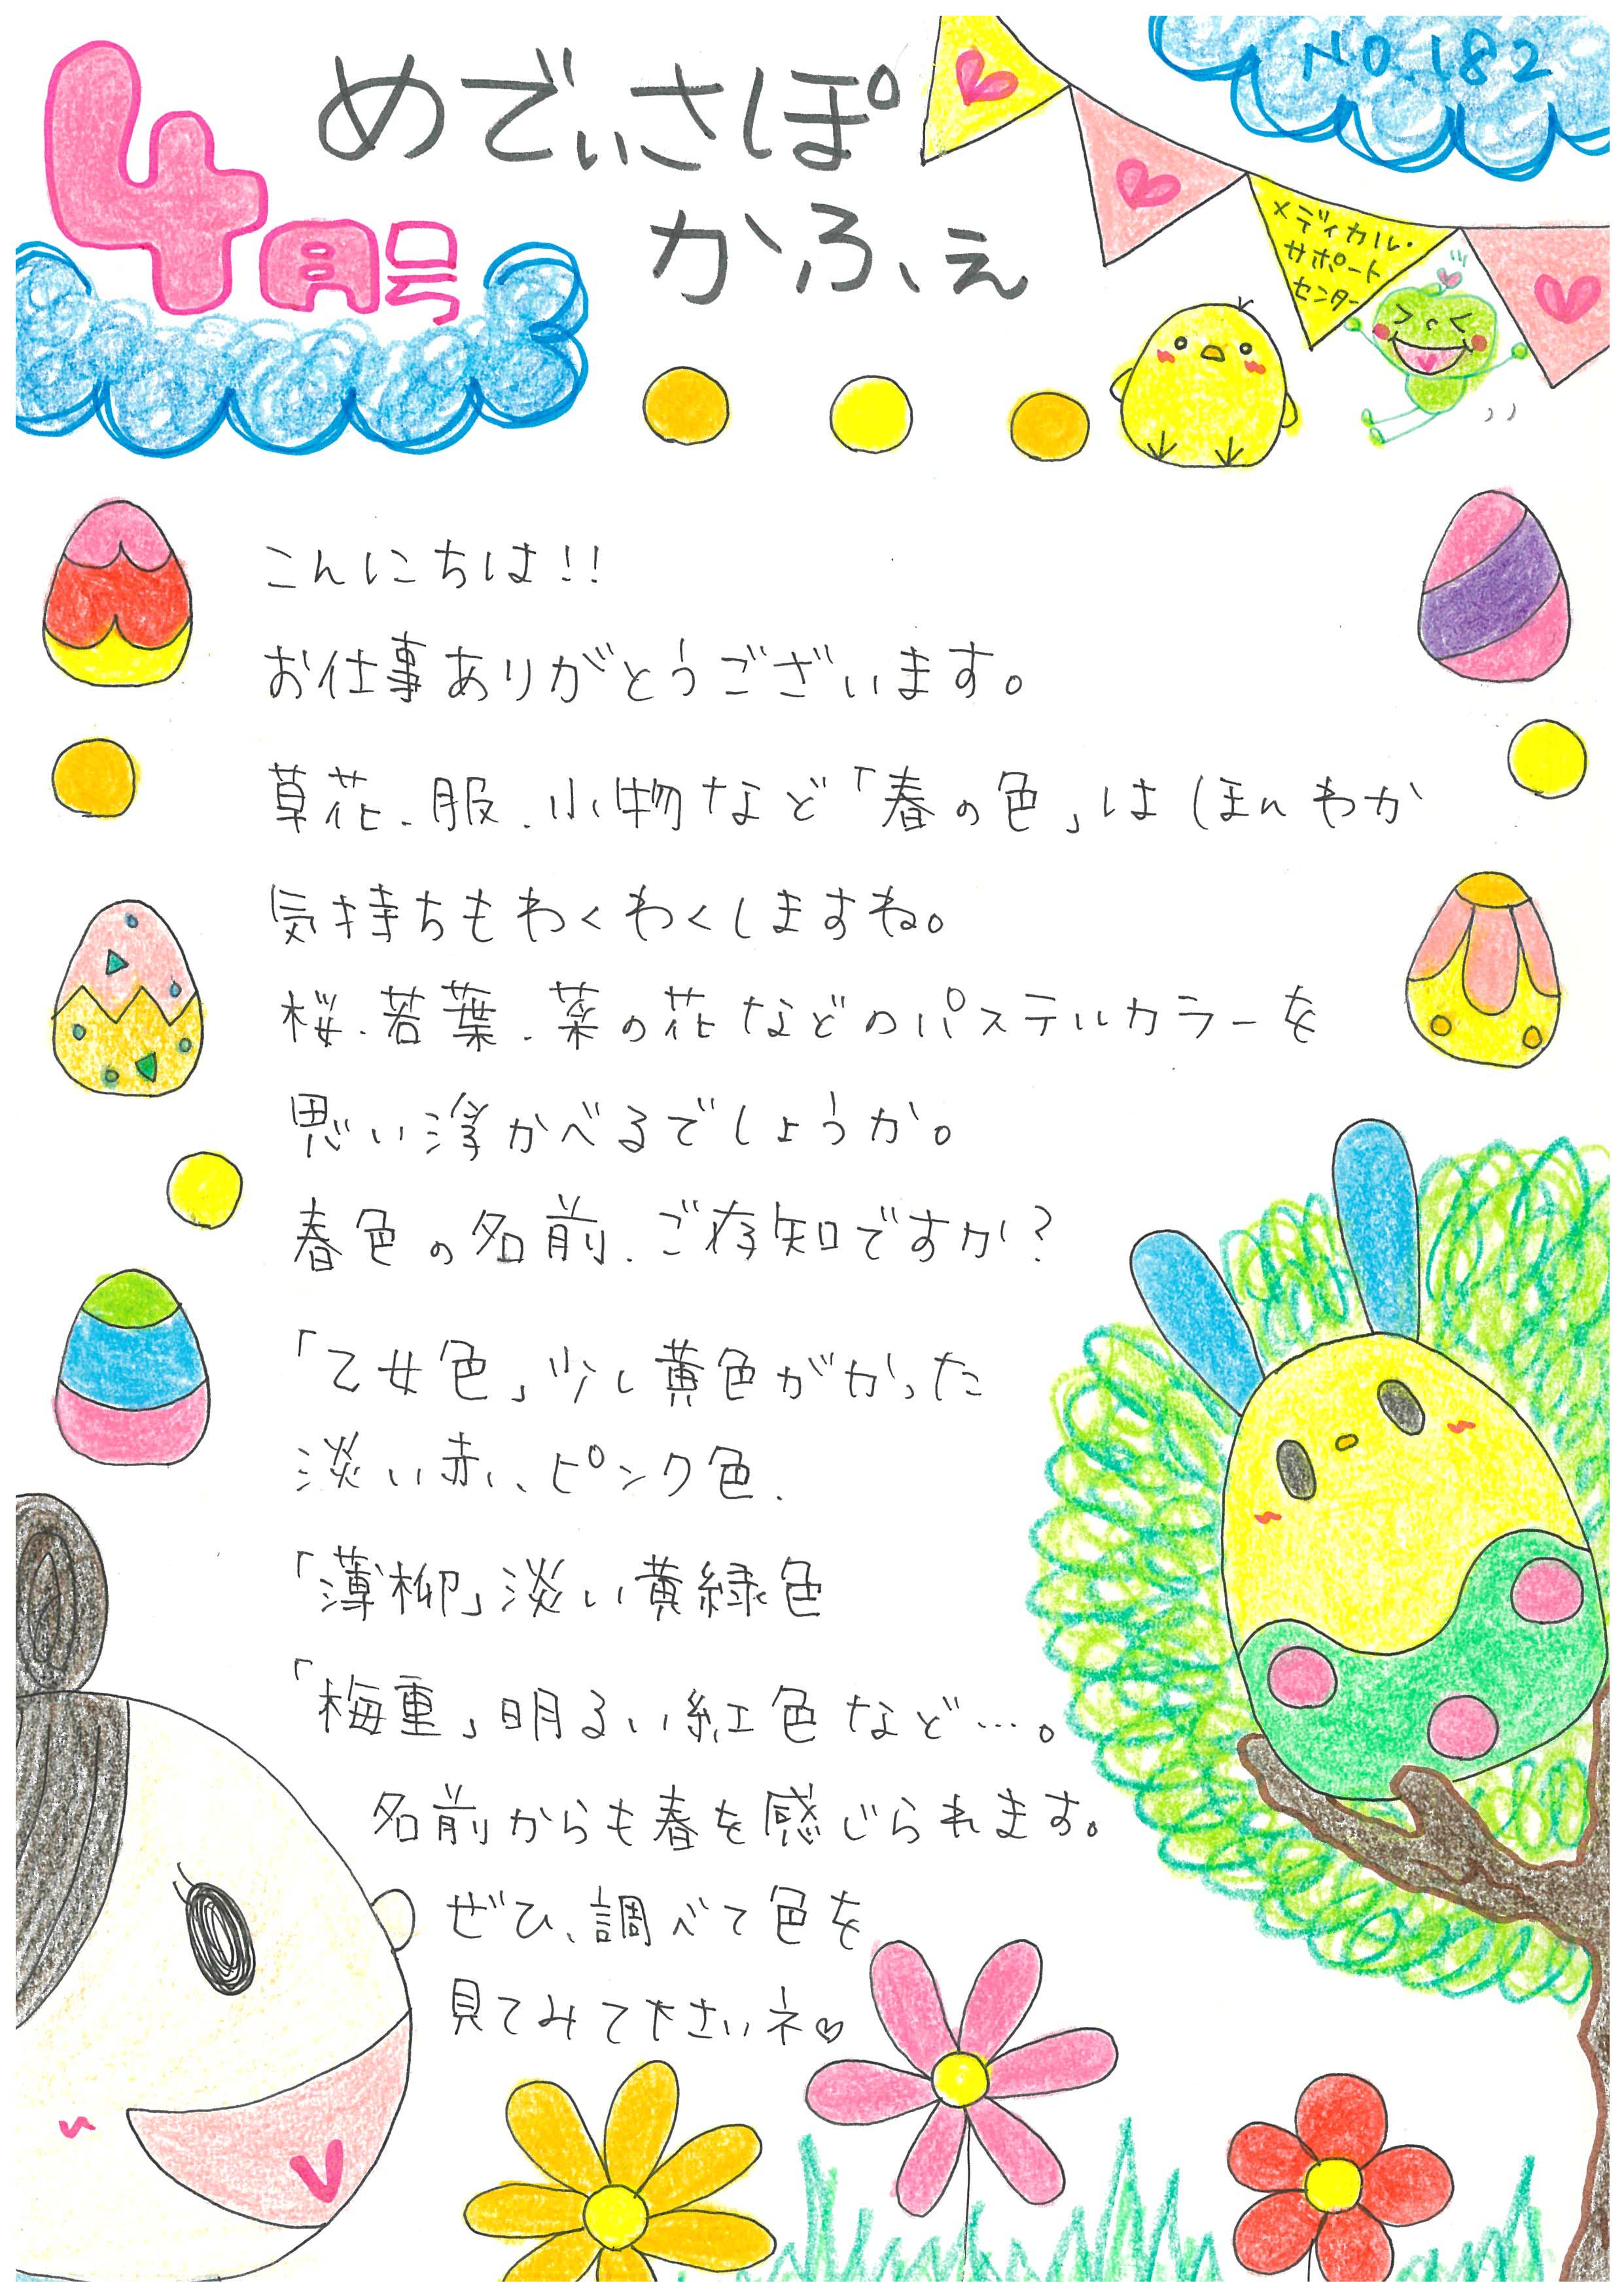 4月号
めでぃさぽ
かふぇ
NO.182
メディカル・
サポート
センター
こんにちは!!
お仕事ありがとうございます。
草花、服、小物など「春の色」はほんわか
気持ちもわくわくしますね。
桜、若葉、菜の花などのパステルカラーを
思い浮かべるでしょうか。
春色の名前、ご存知ですか?
「乙女色」少し黄色がかった
淡い赤い、ピンク色、
「薄柳」淡い黄緑色
「梅重」明るい紅色など…。
名前からも春を感じられます。
ぜひ、調べて色を
見てみて下さいネ♡